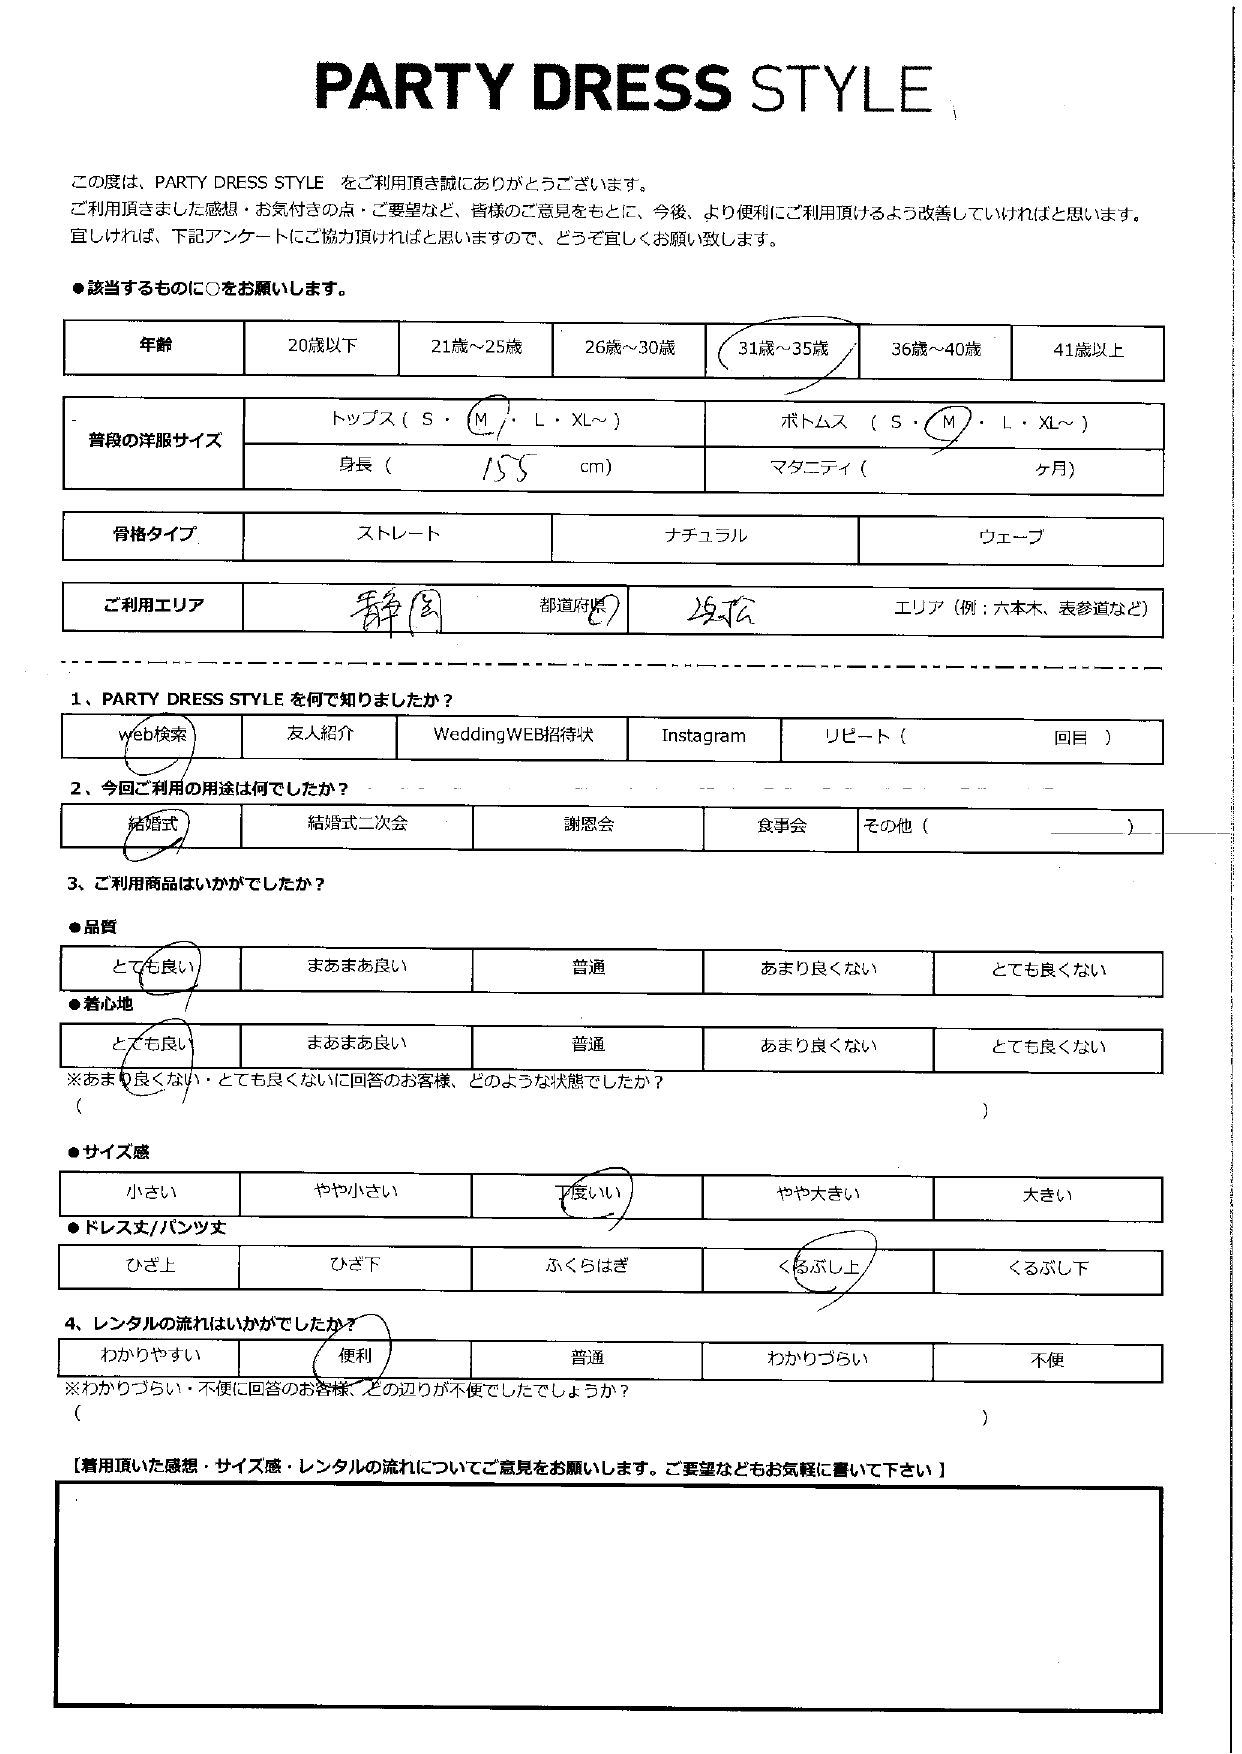 PARTY DRESS STYLE
この度は、PARTY DRESS STYLE をご利用頂き誠にありがとうございます。
ご利用頂きました感想・お気付きの点・ご要望など、皆様のご意見をもとに、今後、より便利にご利用頂けるよう改善していければと思います。
宜しければ、下記アンケートにご協力頂ければと思いますので、どうぞ宜しくお願い致します。
●該当するものに○をお願いします。
年齢 20歳以下 21歳～25歳 26歳～30歳 31歳～35歳 36歳～40歳 41歳以上
普段の洋服サイズ トップス ( S ・ M ・ L ・ XL～ ) ボトムス ( S ・ M ・ L ・ XL～ )
身長 ( 155 cm) マタニティ ( ヶ月)
骨格タイプ ストレート ナチュラル ウェーブ
ご利用エリア 静岡 都道府県 浜松 エリア（例；六本木、表参道など）
1、PARTY DRESS STYLE を何で知りましたか？
web検索 友人紹介 WeddingWEB招待状 Instagram リピート ( 回目 )
2、今回ご利用の用途は何でしたか？
結婚式 結婚式二次会 謝恩会 食事会 その他 ( )
3、ご利用商品はいかがでしたか？
●品質
とても良い まあまあ良い 普通 あまり良くない とても良くない
●着心地
とても良い まあまあ良い 普通 あまり良くない とても良くない
※あまり良くない・とても良くないに回答のお客様、どのような状態でしたか？
( )
●サイズ感
小さい やや小さい 丁度いい やや大きい 大きい
●ドレス丈/パンツ丈
ひざ上 ひざ下 ふくらはぎ くるぶし上 くるぶし下
4、レンタルの流れはいかがでしたか？
わかりやすい 便利 普通 わかりづらい 不便
※わかりづらい・不便に回答のお客様、どの辺りが不便でしたでしょうか？
( )
【着用頂いた感想・サイズ感・レンタルの流れについてご意見をお願いします。ご要望などもお気軽に書いて下さい 】